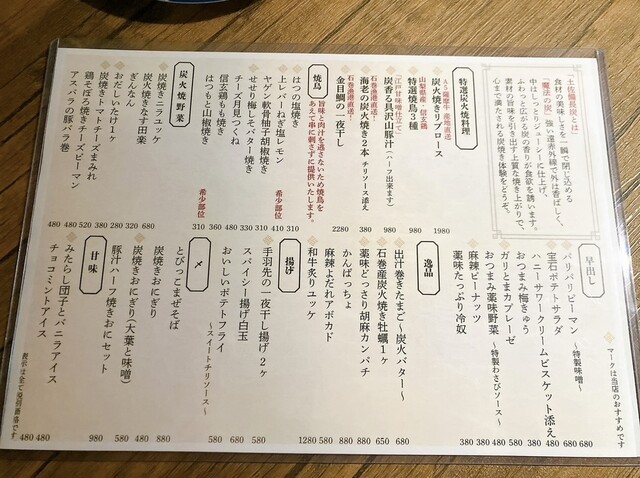 「土佐備長炭とは」
食材の美味しさを一瞬で閉じ込める
『魔法の炭』。強い遠赤外線で外は香ばしく、
中はしっとりジューシーに仕上げ、
ふわっと広がる炭の香りが食欲を誘います。
素材の旨味を引き出す上質な焼き上がりで、
心まで満たされる炭焼き体験をどうぞ。
特選炭火焼料理
A5薩摩牛 産地直送
炭火焼きリブロース 1980
山梨県産・信玄鶏
特選焼鳥3種 980
「江戸甘味噌仕立て」
炭香る具沢山豚汁(ハーフ出来ます) 580
石巻漁港直送!
海老の炭火焼き2本 チリソース添え 380
石巻漁港直送!
金目鯛の一夜干し 2280
焼鳥
旨味と肉汁を逃さないため焼鳥を
あえて串に刺さずに提供いたします。
はつの塩焼き 310
上レバーねぎ塩レモン 希少部位 410
ヤゲン軟骨柚子胡椒焼き 310
せせり梅しそバター焼き 330
チーズ月見つくね 480
信玄鶏もも焼き 360
はつもと山椒焼き 希少部位 310
炭火焼野菜
炭焼きニラユッケ 680
炭火焼きなす田楽 320
ぎんなん 310
おだしいたけ1ヶ 380
炭焼きトマトチーズまみれ 520
鶏そぼろ焼きチーズピーマン 480
アスパラの豚バラ巻 480
マークは当店のおすすめです
早出し
パリパリピーマン ~特製味噌~ 380
宝石ポテトサラダ 680
ハニーサワークリームビスケット添え 680
おつまみ梅きゅう 480
ガリとまカプレーゼ 380
おつまみ薬味野菜 ~特製わさびソース~ 580
麻辣ピーナッツ 380
薬味たっぷり冷奴 380
逸品
出汁巻きたまご~炭火バター~ 680
石巻産炭火焼き牡蠣1ヶ 650
薬味どっさり胡麻カンパチ 880
かんぱっちょ 880
麻辣よだれアボカド 580
和牛炙りユッケ 1280
揚げ
手羽先の一夜干し揚げ2ヶ 580
スパイシー揚げ白玉 680
おいしいポテトフライ ~スイートチリソース~ 580
〆
とびっこまぜそば 880
炭焼きおにぎり 480
炭焼きおにぎり(大葉と味噌) 580
豚汁ハーフ焼きおにセット 980
甘味
みたらし団子とバニラアイス 480
チョコミントアイス 480
表示は全て税別価格です